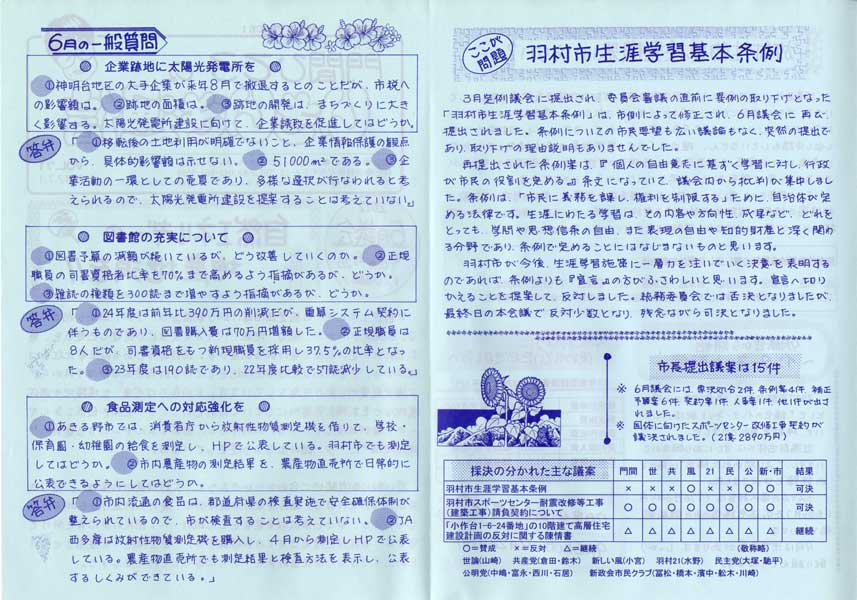 6月の一般質問
◎ 企業跡地に太陽光発電所を ◎
①神明台地区の大手企業が来年8月で撤退するとのことだが、市税へ
の影響額は。②跡地の面積は。③跡地の開発は、まちづくりに大き
く影響する。太陽光発電所建設に向けて、企業誘致を促進してはどうか。
答弁
「①移転後の土地利用が明確でないこと、企業情報保護の観点
から、具体的影響額は示せない。②51000m²である。③企
業活動の一環としての売買であり、多様な選択が行なわれると考
えられるので、太陽光発電所建設を提案することは考えていない。」
◎ 図書館の充実について ◎
①図書予算の減額が続いているが、どう改善していくのか。②正規
職員の司書資格者比率を70%まで高めるよう指摘があるが、どうか。
③雑誌の種類を300誌まで増やすよう指摘があるが、どうか。
答弁
「①24年度は前年比390万円の削減だが、電算システム契約に
伴うものであり、図書購入費は70万円増額した。②正規職員は
8人だが、司書資格をもつ新規職員を採用し37.5%の比率となっ
た。③23年度は190誌であり、22年度比較で57誌減少している。」
◎ 食品測定への対応強化を ◎
①あきる野市では、消費者庁から放射性物質測定機を借りて、学校・
保育園・幼稚園の給食を測定し、HPで公表している。羽村市でも測定
してはどうか。②市内農産物の測定結果を、農産物直売所で日常的に
公表できるようにしてはどうか。
答弁
「①市内流通の食品は、都道府県の検査実施で安全確保体制が
整えられているので、市が検査することは考えていない。②JA
西多摩は放射性物質測定機を購入し、4月から測定しHPで公表
している。農産物直売所でも測定結果と検査方法を表示し、公表
するしくみができている。」
ここが問題
羽村市生涯学習基本条例
3月定例議会に提出され、委員会審議の直前に異例の取り下げとなった
「羽村市生涯学習基本条例」は、市側によって修正され、6月議会に再び
提出されました。条例についての市民要望も広い議論もなく、突然の提出で
あり、取り下げの理由説明もありませんでした。
再提出された条例案は、『個人の自由意志に基ずく学習に対し、行政
が市民の役割を定める』条文になっていて、議会内から批判が集中しまし
た。条例は、「市民に義務を課し、権利を制限する」ために、自治体が定
める法律です。生涯にわたる学習は、その内容や方向性、成果など、どれを
とっても、学問や思想信条の自由、また表現の自由や知的財産と深く関わ
る分野であり、条例で定めることにはなじまないものと思います。
羽村市が今後、生涯学習施策に一層力を注いでいく決意を表明する
のであれば、条例よりも『宣言』の方がふさわしいと思います。宣言へ切り
かえることを提案して、反対しました。総務委員会では否決となりましたが、
最終日の本会議で反対少数となり、残念ながら可決となりました。
市長提出議案は15件
※ 6月議会には、専決処分2件、条例等4件、補正
予算案6件、契約等1件、人事案1件、他1件が出
されました。
※ 国体に向けたスポーツセンター改修工事契約が
議決されました。(2億2890万円)
採決の分かれた主な議案 門間 世 共 風 21 民 公 新・市 結果
羽村市生涯学習基本条例 × × × ○ × × ○ ○ 可決
羽村市スポーツセンター耐震改修等工事
(建築工事)請負契約について ○ ○ ○ ○ ○ ○ ○ ○ 可決
「小作台1-6-24番地」の10階建て高層住宅
建設計画の反対に関する陳情書 △ △ △ △ △ △ △ △ 継続
○=賛成 ×=反対 △=継続 (敬称略)
世論(山崎) 共産党(倉田・鈴木) 新しい風(小宮) 羽村21(水野) 民主党(大塚・馳平)
公明党(中嶋・富永・西川・石居) 新政会市民クラブ(冨松・橋本・濱中・舩木・川崎)